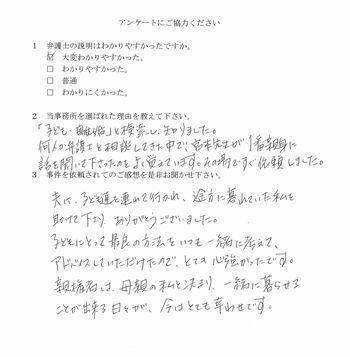 アンケートにご協力ください
1 弁護士の説明はわかりやすかったですか。
☑ 大変わかりやすかった。
□ わかりやすかった。
□ 普通
□ わかりにくかった。
2 当事務所を選ばれた理由を教えて下さい。
「子ども・離婚」と検索し、知りました。
何人の弁護士と相談してきた中で、宮本先生が1番親身に
話を聞いて下さったのをよく覚えています。その場ですぐ依頼しました。
3 事件を依頼されてのご感想を是非お聞かせ下さい。
夫に、子ども達を連れて行かれ、途方に暮れていた私を
助けて下さり、ありがとうございました。
子どもにとって最良の方法をいつも一緒に考えて、
アドバイスしていただけたので、とても心強かったです。
親権者は、母親の私と決まり、一緒に暮らせる
ことが出来る日々が、今はとても幸わせです。